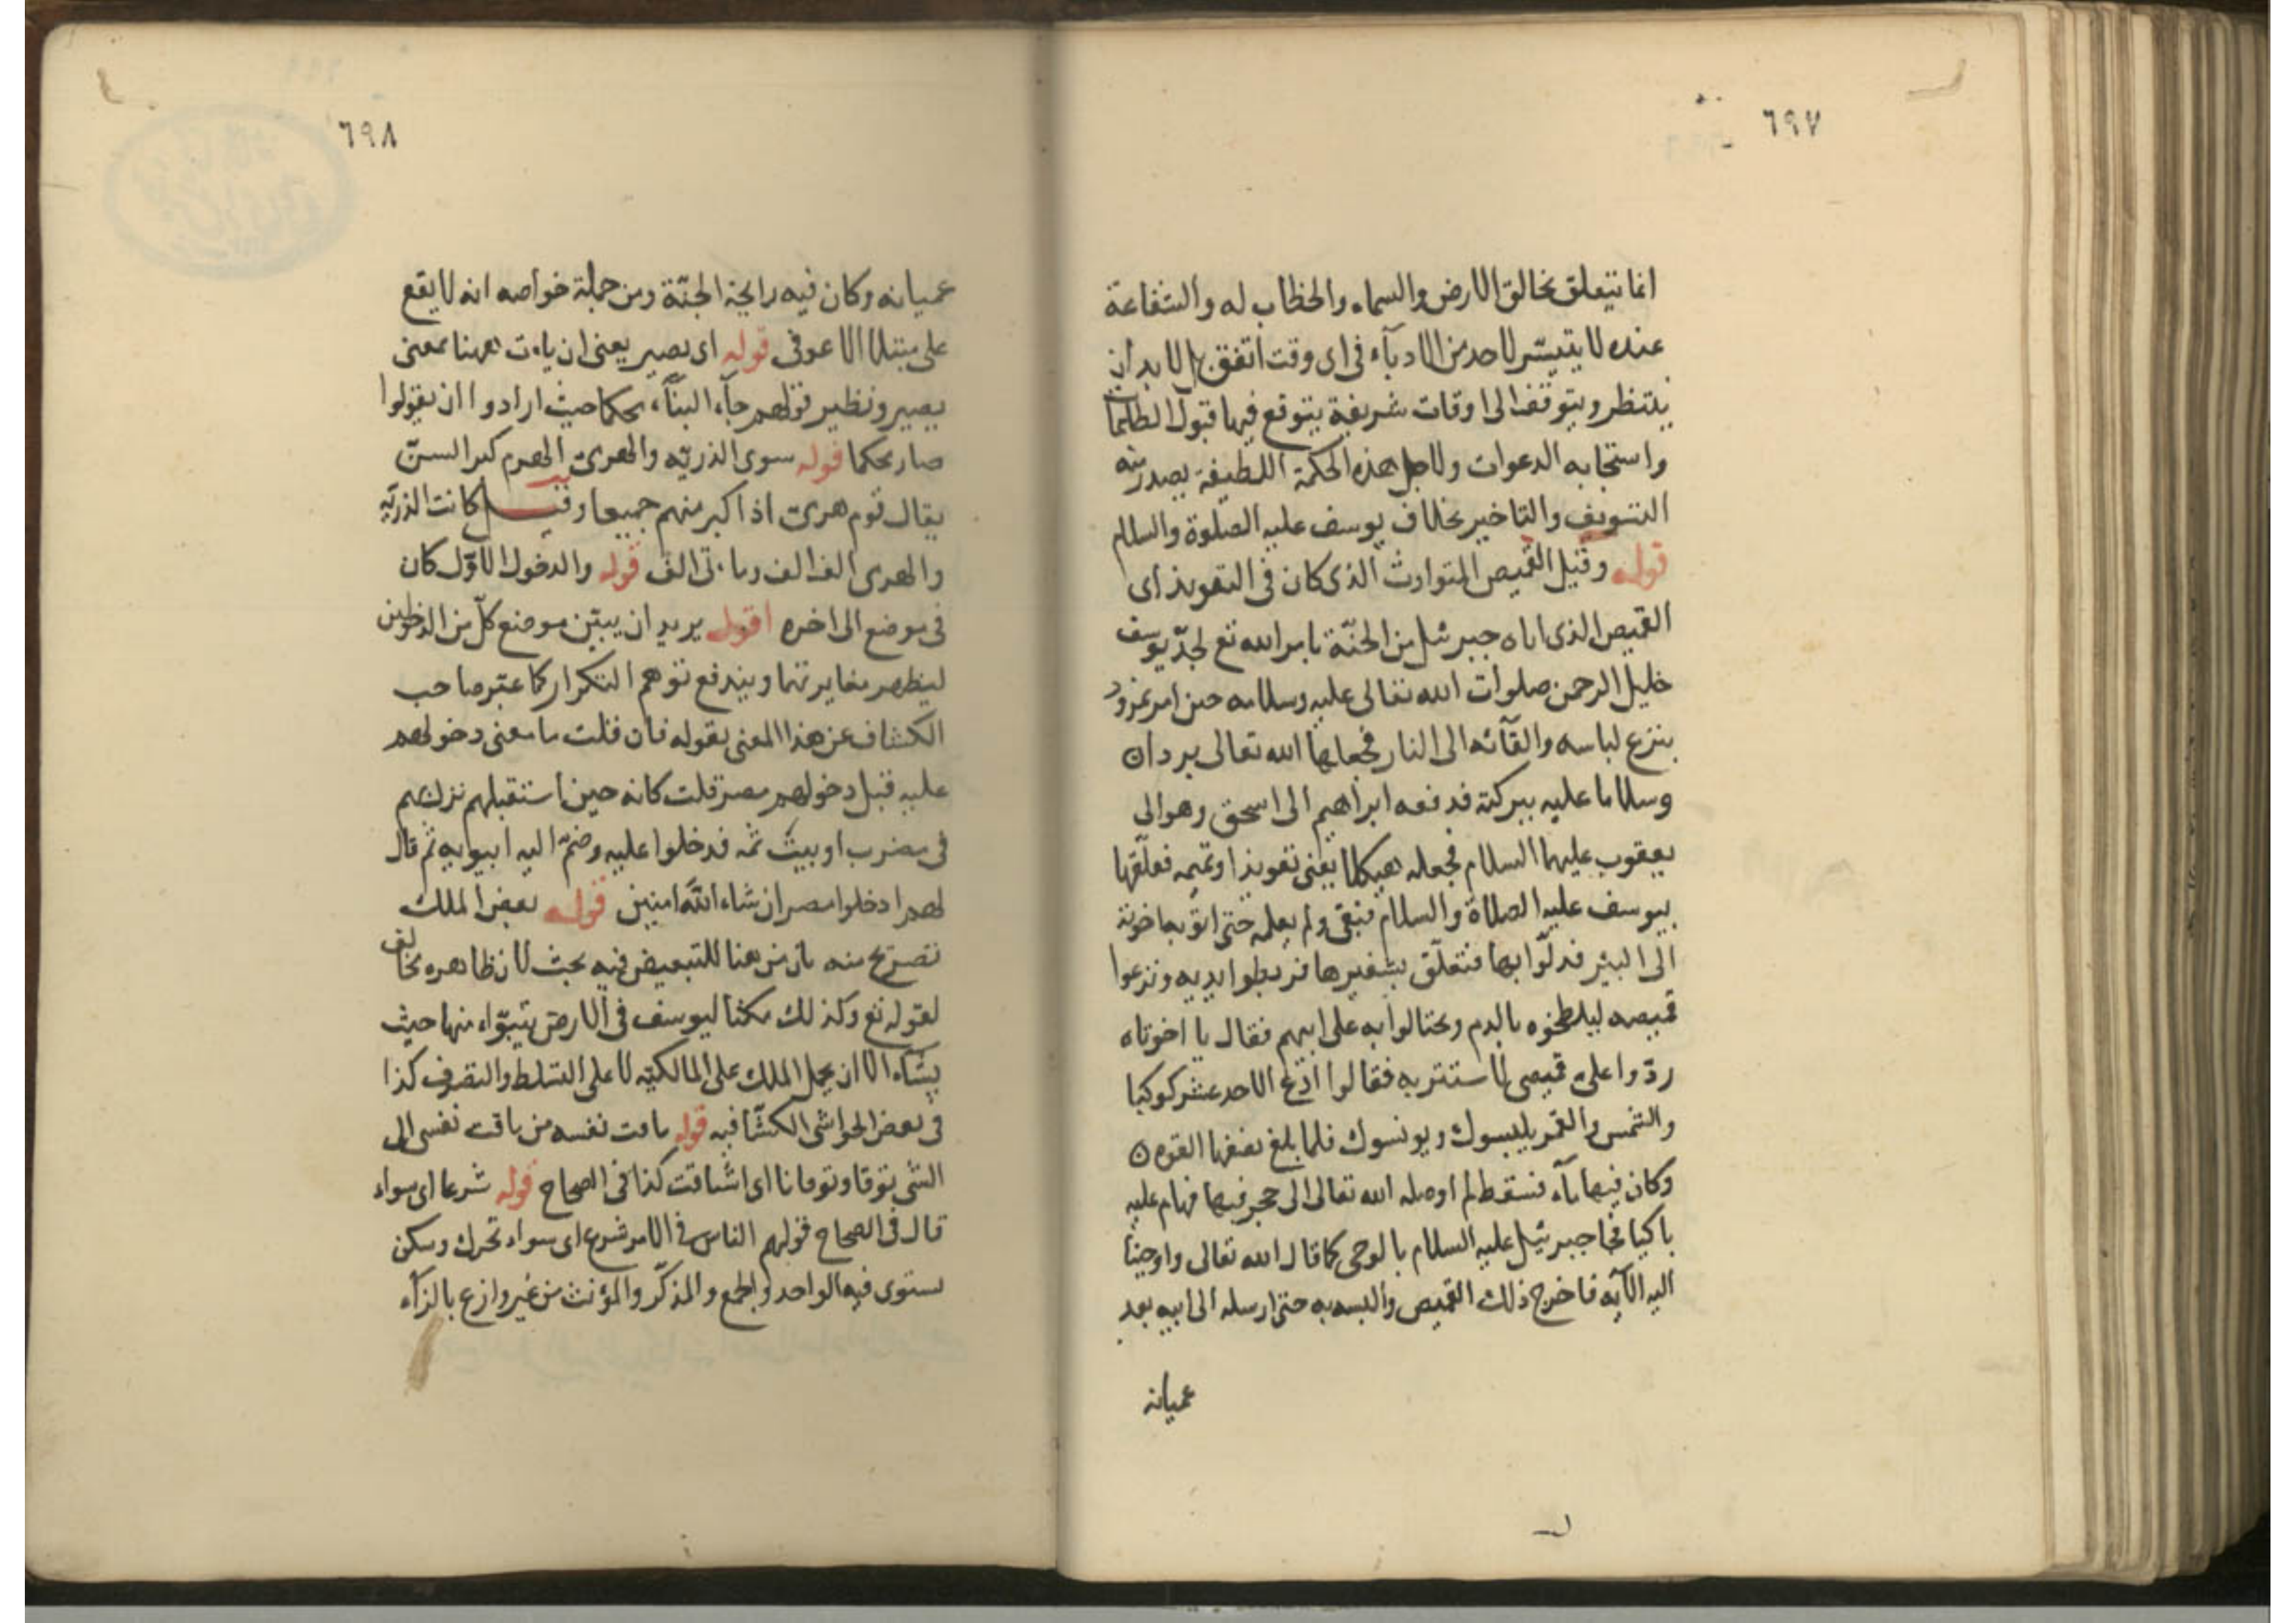 ٦٩٧
انما تتعلق بخالق الارض والسماء والخطاب له والشفاعة
عنده لا يتيسّر لاحد من الادباء فى اى وقت اتفق بل لا بد ان
ينتظر ويتوقف الى اوقات شريفة يتوقع فيها قبول الطلبات
واستجابه الدعوات ولاجل هذه الحكمة اللطيفة يصدر منه
التسويف والتاخير بخلاف يوسف عليه الصلوة والسلام
قوله وقيل القميص المتوارث الذى كان فى التعويذ اى
القميص الذى اتاه جبرئيل من الجنّة بامر الله تع لجدّ يوسف
خليل الرحمن صلوات الله تعالى عليه وسلامه حين امر نمرود
بنزع لباسه والقآئه الى النار فجعلها الله تعالى بردان
وسلاما عليه ببركته فدفعه ابراهيم الى اسحق وهو الى
يعقوب عليهما السلام فجعله هيكلا يعنى تعويذا وتميمه فعلّقها
بيوسف عليه الصلاة والسلام فبقى ولم يعلمه حتى اتو بها خوته
الى البئر فدلّوا بها فتعلّق بشفيرها فربطوا يديه ونزعوا
قميصه ليلطخوه بالدم ويحتالوا به على ابيهم فقال يا اخوتاه
ردّوا على قميصى لاستتر به فقالوا ادع الاحد عشر كوكبا
والشمس والقمر يلبسوك ويونسوك فلما بلغ نصفها القوه ن
وكان فيها مآء فسقط لم اوصله الله تعالى الى حجر فيها فهام عليه
باكيا فجا جبرئيل عليه السلام بالوحى كما قال الله تعالى واوحينا
اليه الآيه فاخرج ذلك القميص والبسه به حتى ارسله الى ابيه بعد
عميانه
٦٩٨
عميانه وكان فيه رايحة الجنّة ومن جملة خواصه انه لا يقع
على مبتلا الا عوفى قوله اى يصير يعنى ان يات ههنا بمعنى
يصير ونظير قولهم جآء البنآء محكما حيث ارادوا ان يقولوا
صار محكما قوله سوى الذريّه والهرمى الهرم كبر السنّ
يقال قوم هرمى اذا كبر منهم جميعا وقيل كانت الذريّه
والهرمى الف الف وماتى الف قوله والدخول الاوّل كان
فى موضع الى اخره اقول يريد ان يبيّن موضع كلّ من الدخولين
ليظهر مغايرتهما ويندفع توهم التكرار كما عبّر صاحب
الكشاف عن هذا المعنى بقوله فان قلت ما معنى دخولهم
عليه قبل دخولهم مصر قلت كانه حين استقبلهم نزل بهم
فى مضرب او بيت ثمه فدخلوا عليه وضمّ اليه ابيويه ثم قال
لهم ادخلوا مصر ان شاء اللّه امنين قوله بعض الملك
تصريح منه بان من هنا للتبعيض فيه بحث لان ظاهره يخالف
لقوله تع وكذلك مكنا ليوسف فى الارض يتبوّاء منها حيث
يشآء الا ان يحمل الملك على المالكيّه لا على التسلط والتصرف كذا
فى بعض الحواشى الكشّافيه قوله تاقت نفسه من تاقت نفسى الى
الشى توقا وتوقانا اى اشتاقت كذا فى الصحاح قوله شرعا اى سواء
قال فى الصحاح قولهم الناس فى الامر شرع اى سواء تحرك وسكن
يستوى فيه الواحد والجمع والمذكّر والمؤنث من غير وازع بالزآء